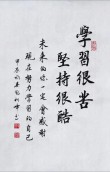 學習很苦
堅持很酷
未來的你一定會感謝
現在努力學習的自己